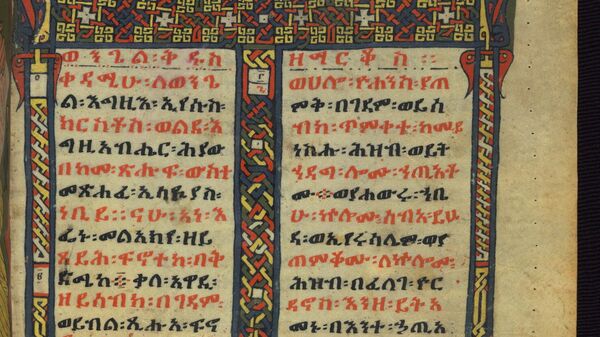 ወንጌል፡ቅዱስ
ቀዳሚሁ፡ለወንጌ
ል፡እግዚእ፡ኢየሱስ፡
ክርስቶስ፡ወልደ፡እ
ግዚአብሔር፡ሕያው
በከመ፡ጽሑፍ፡ውስተ
መጽሐፈ፡ኢሳይያስ፡
ነቢይ፡፡ናሁ፡አነ፡እ
ፌኑ፡መልአከየ፡ዘይ
ጸይሕ፡ፍኖተከ፡በቅ
ድሜከ፡ቃለ፡አዋዲ፡
ዘይሰብክ፡በገዳም፡
ወይብል፡ጺሑ፡ፍኖ
ዘማርቆስ፡፡
ወሀሎ፡ዮሐንስ፡ያጠ
ምቅ፡በገዳም፡ወይሰ
ብክ፡ጥምቀተ፡ከመ፡ይ
ነስሑ፡ሕዝብ፡ወይት
ኀደግ፡ሎሙ፡ኀጢአቶ
ሙ፡ወየሐውሩ፡ኀቤ
ሁ፡ኵሎሙ፡ሰብአ፡ይሁ
ዳ፡ወኢየሩሳሌም፡ወያ
ጠምቆሙ፡ለኵሎሙ፡
ሕዝብ፡በፈለገ፡ዮር
ዳኖስ፡እንዘ፡ይትአ
መኑ፡በእንተ፡ኀጢአ